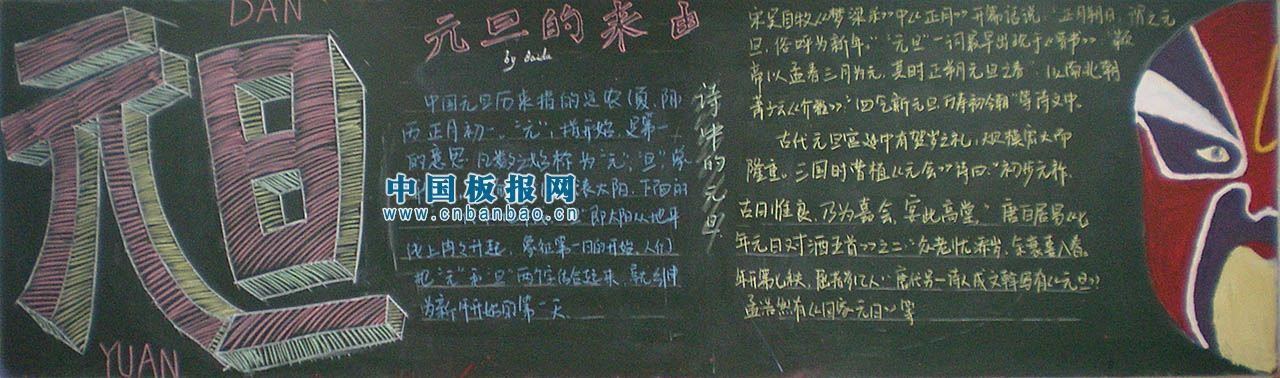 DAN
元旦
YUAN
元旦的来由
by daida
中国元旦历来指的是农(夏、阴
历)正月初一。"元",指开始,是第一
的意思
日数之始称为"元";"旦"象
表太阳,下面的
中国板报网
www.cnbanbao.cn
即太阳从地平
线上冉冉升起,象征第一日的开始。人们
把"元"和"旦"两个字结合起来,就引申
为新年开始的第一天
诗中的元旦
宋吴自牧《梦梁录》中《正月》开篇话说:"正月朔日,谓之元
旦,俗呼为新年。""元旦"一词最早出现于《晋书》:"颛
帝以孟春三月为元,其时正朔元旦之春" 以南北朝
萧子云《介雅》:"四气新元旦万寿初今朝"等诗文中。
古代元旦宫廷中有贺岁之礼,规模宏大而
隆重。三国时曹植《元会》诗曰:"初步元祚,
古日惟良,乃为嘉会,宴此高堂"唐白居易《七
年元日对酒五首》之二"众老忧添岁,余衰喜入春。
年开第七秩,屈指几人"唐代另一诗人成文斡写有《元旦》
孟浩然有《田家元日》等